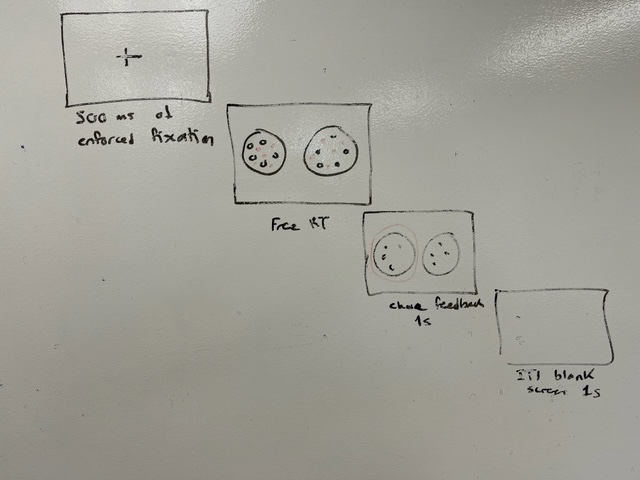 500 ms of
enforced fixation
Free RT
choice feedback
1s
ITI blank
screen 1s